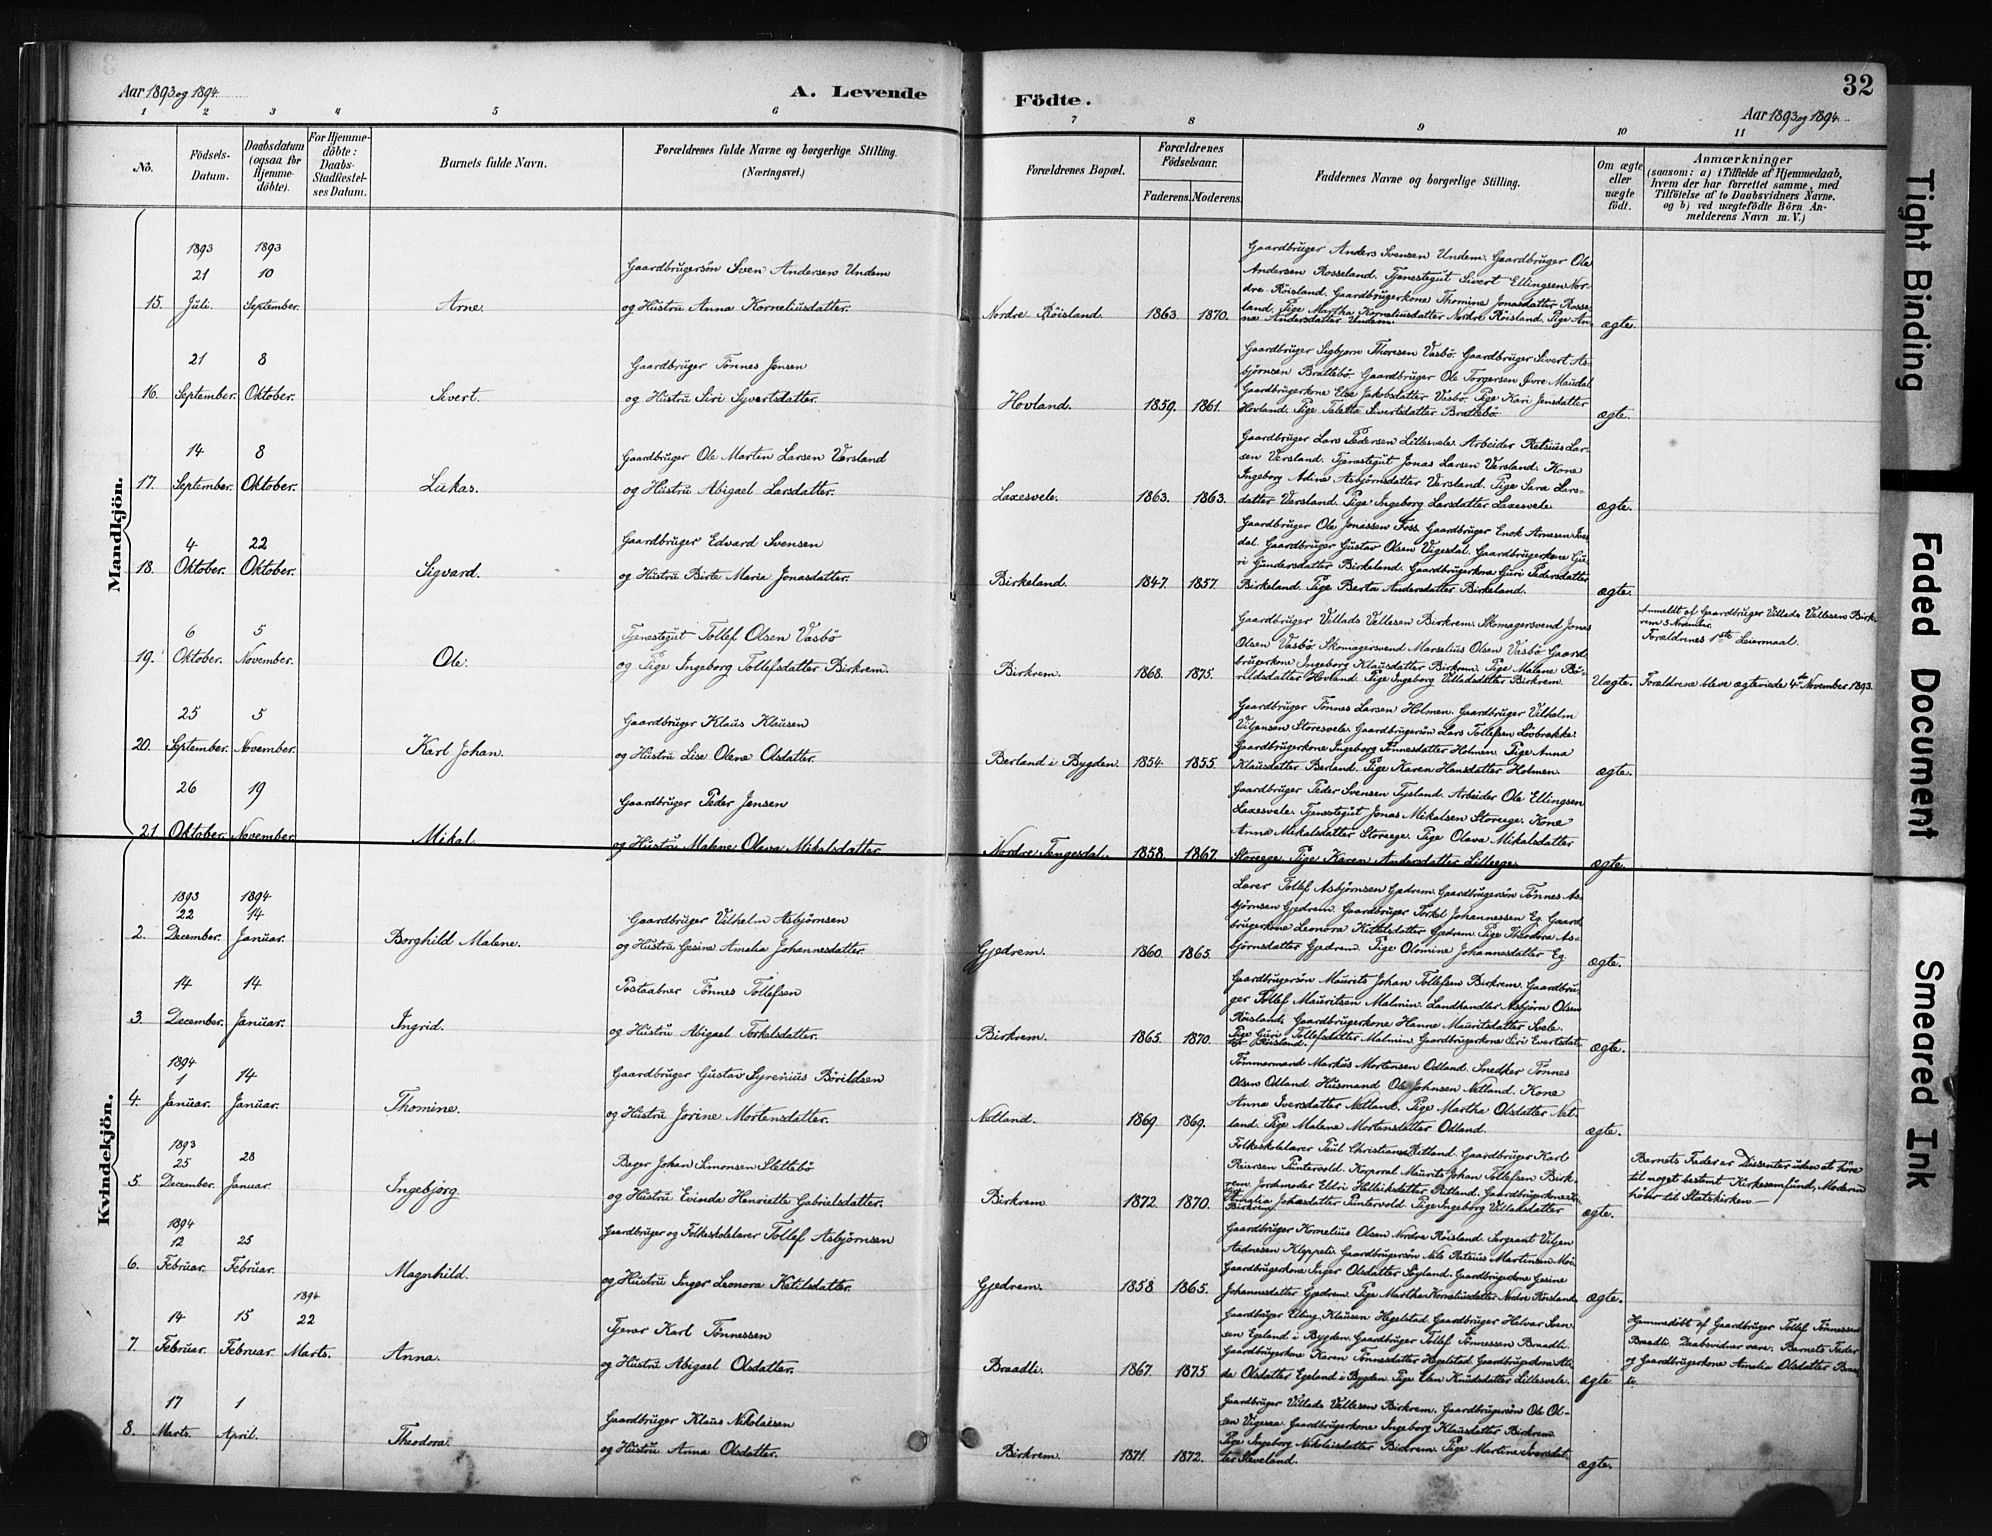 Aar 1893 og 1894. A. Levende Födte. 32
Aar 1893 og 1894.
1 2 3 4 5 6 7 8 9 10 11
No. Födsels-Datum. Daabsdatum (ogsaa for Hjemmedöbte). For Hjemmedöbte: Daabs-Stadfæstelses Datum. Barnets fulde Navn. Forældrenes fulde Navne og borgerlige Stilling. (Næringsvei.) Forældrenes Bopæl. Forældrenes Födselsaar. Faderens. Moderens. Faddernes Navne og borgerlige Stilling. Om ægte eller uægte födt. Anmærkninger (saasom: a) i Tilfælde af Hjemmedaab, hvem der har forrettet samme, med Tilföielse af to Daabsvidners Navne, og b) ved uægtefödte Börn Anmelderens Navn m. V.)
Mandkjön.
1893 1893
21 10 Gaardbrugersön Sven Andersen Undem
15. Juli. September. Arne. og Hustru Anna Korneliusdatter. Nordre Röisland. 1863. 1870. ægte.
Gaardbruger Anders Svensen Undem. Gaardbruger Ole
Andersen Rosseland. Tjenestegut Sivert Ellingsen Nor-
dre Röisland. Gaardbrugerkone Thomine Jonasdatter Rosse-
land. Pige Martha Korneliusdatter Nordre Röisland. Pige An-
na Andersdatter Undem.
21 8 Gaardbruger Tönnes Jensen
16. September. Oktober. Sivert. og Hustru Siri Syvertsdatter. Hovland. 1859. 1861. ægte.
Gaardbruger Sigbjørn Thoresen Vasbö. Gaardbruger Sivert As-
björnsen Brattebö. Gaardbruger Ole Torgersen Övre Maudal.
Gaardbrugerkone Else Jakobsdatter Vasbö. Pige Kari Jensdatter
Hovland. Pige Taletta Sivertsdatter Brattebö.
14 8 Gaardbruger Ole Martin Larsen Versland
17. September. Oktober. Lukas. og Hustru Abigael Larsdatter. Laxesvele. 1863. 1863. ægte.
Gaardbruger Lars Pedersen Lillesvele. Arbeider Retsius Lar-
sen Versland. Tjenestegut Jonas Larsen Versland. Kone
Ingeborg Adina Asbjörnsdatter Versland. Pige Sara Lars-
datter Versland. Pige Ingeborg Larsdatter Laxesvele.
4 22 Gaardbruger Edvard Svensen
18. Oktober. Oktober. Sigvard. og Hustru Birte Marie Jonasdatter. Birkeland. 1847. 1857. ægte.
Gaardbruger Ole Jonassen Foss. Gaardbruger Enok Arnesen Ives-
dal. Gaardbruger Gustav Olsen Vigesdal. Gaardbrugerkone Gu-
ri Gundersdatter Birkeland. Gaardbrugerkone Guri Pedersdatter
Birkeland. Pige Berta Andersdatter Birkeland.
6 5 Tjenestegut Tollef Olsen Vasbö
19. Oktober. November. Ole. og Pige Ingeborg Tollefsdatter Birkrem. Birkrem. 1868. 1875. Uægte.
Gaardbruger Villads Vellesen Birkrem. Skomagersvend Jonas
Olsen Vasbö. Skomagersvend Marselius Olsen Vasbö. Gaard-
brugerkone Ingeborg Klausdatter Birkrem. Pige Malene Bö-
rildsdatter Hovland. Pige Ingeborg Villadsdatter Birkrem.
Anmeldt af Gaardbruger Villads Vellesen Birk-
rem 5 November.
Forældrenes 1ste Leiermaal.
Forældrene bleve ægteviede 4de November 1893.
25 5 Gaardbruger Klaus Klausen
20. September. November. Karl Johan. og Hustru Lise Olene Olsdatter. Berland i Bygden. 1854. 1855. ægte.
Gaardbruger Tönnes Larsen Holmen. Gaardbruger Vilhelm
Viljansen Storesvele. Gaardbrugersön Lars Tollefsen Lövbrække.
Gaardbrugerkone Ingeborg Tönnesdatter Holmen. Pige Anna
Klausdatter Berland. Pige Karen Hansdatter Holmen.
26 19 Gaardbruger Peder Jensen
21. Oktober. November. Mikal. og Hustru Malene Olava Mikalsdatter. Nordre Tengesdal. 1858. 1867. ægte
Gaardbruger Peder Svensen Tysland. Arbeider Ole Ellingsen
Laxesvele. Tjenestegut Jonas Mikalsen Storeege. Kone
Anna Mikalsdatter Storeege. Pige Olava Mikalsdatter
Storeege. Pige Karen Andersdatter Lilleege.
Kvindekjön.
1893 1894
22 14 Gaardbruger Vilhelm Asbjörnsen
2. December. Januar. Borghild Malene. og Hustru Gesine Amelia Johannesdatter. Gjedrem. 1860. 1865. ægte.
Lærer Tollef Asbjörnsen Gjedrem. Gaardbrugersön Tönnes As-
björnsen Gjedrem. Gaardbruger Torkel Johannessen Eg. Gaard-
brugerkone Leonora Kittilsdatter Gjedrem. Pige Theodora As-
björnsdatter Gjedrem. Pige Olomine Johannesdatter Eg
14 14 Postaabner Tönnes Tollefsen
3. December. Januar. Ingrid. og Hustru Abigael Torkelsdatter. Birkrem. 1865. 1870. ægte.
Gaardbrugersön Maurits Johan Tollefsen Birkrem. Gaardbru-
ger Tollef Mauritsen Malmin. Landhandler Asbjörn Olsen
Röisland. Gaardbrugerkone Hanne Mauritsdatter Svele.
Pige Guri Tollefsdatter Malmin. Gaardbrugerkone Siri Evertsdat-
ter Röisland.
1894
1 14 Gaardbruger Gustav Syrenius Börildsen
4. Januar. Januar. Thomine. og Hustru Jorine Mortensdatter. Netland. 1869. 1869. ægte.
Tömmermand Markus Mortensen Odland. Snedker Tönnes
Olsen Odland. Husmand Ole Johnsen Netland. Kone
Anna Iversdatter Netland. Pige Martha Olsdatter Net-
land. Pige Malene Mortensdatter Odland.
1893
25 28 Bager Johan Simonsen Slettebö
5. December. Januar. Ingebjörg. og Hustru Evinda Henriette Gabrielsdatter. Birkrem 1872. 1870. ægte.
Folkeskolelærer Paul Christians. Ritland. Gaardbruger Karl
Reiersen Puntervold. Korporal Maurits Johan Tollefsen Birk-
rem. Jordmoder Eldri Helliksdatter Ritland. Gaardbrugerkone
Amalia Johasdatter Puntervold. Pige Ingeborg Villaksdatter
Birkrem.
Barnets Fader er Dissenter uden at höre
til noget bestemt Kirkesamfund, Moderen
hörer til Statskirken.—
1894
12 25 Gaardbruger og Folkeskolelærer Tollef Asbjörnsen
6. Februar. Februar. Magnhild. og Hustru Inger Leonora Ketilsdatter. Gjedrem. 1858 1865. ægte.
Gaardbruger Kornelius Olsen Nordre Röisland. Sergeant Viljen
Aadnesen Kleppeli. Gaardbrugersön Nils Retsius Martinsen Moi.
Gaardbrugerkone Inger Olsdatter Söyland. Gaardbrugerkone Gesine
Johannesdatter Gjedrem. Pige Martha Korneliusdatter Nordre Röisland.
1894
14 15 22 Tjener Karl Tönnessen
7. Februar. Februar. Marts. Anna. og Hustru Abigael Olsdatter. Braadli. 1867. 1875 ægte
Gaardbruger Elling Klausen Hegelstad. Gaardbruger Halvar Sven-
sen Egeland i Bygden. Gaardbruger Tollef Tönnessen Braadli.
Gaardbrugerkone Karen Tönnesdatter Hegelstad. Gaardbrugerkone Al-
da Olsdatter Egeland i Bygden. Pige Elen Knudsdatter Lillesvele.
Hjemmedöbt af Gaardbruger Tollef Tönnessen
Braadli. Daabsvidner vare: Barnets Fader
og Gaardbrugerkone Amelia Olsdatter Braad-
li.
17 1 Gaardbruger Klaus Nikolaisen
8. Marts. April. Theodora. og Hustru Anna Olsdatter. Birkrem. 1871. 1872. ægte.
Gaardbruger Villads Vellesen Birkrem. Gaardbrugersön Ole Ol-
sen Vigesaa. Gaardbrugerkone Ingeborg Klausdatter Birkrem.
Pige Ingeborg Nikolaisdatter Birkrem. Pige Martine Iversdat-
ter Sleveland.
Tight Binding
Faded Document
Smeared Ink